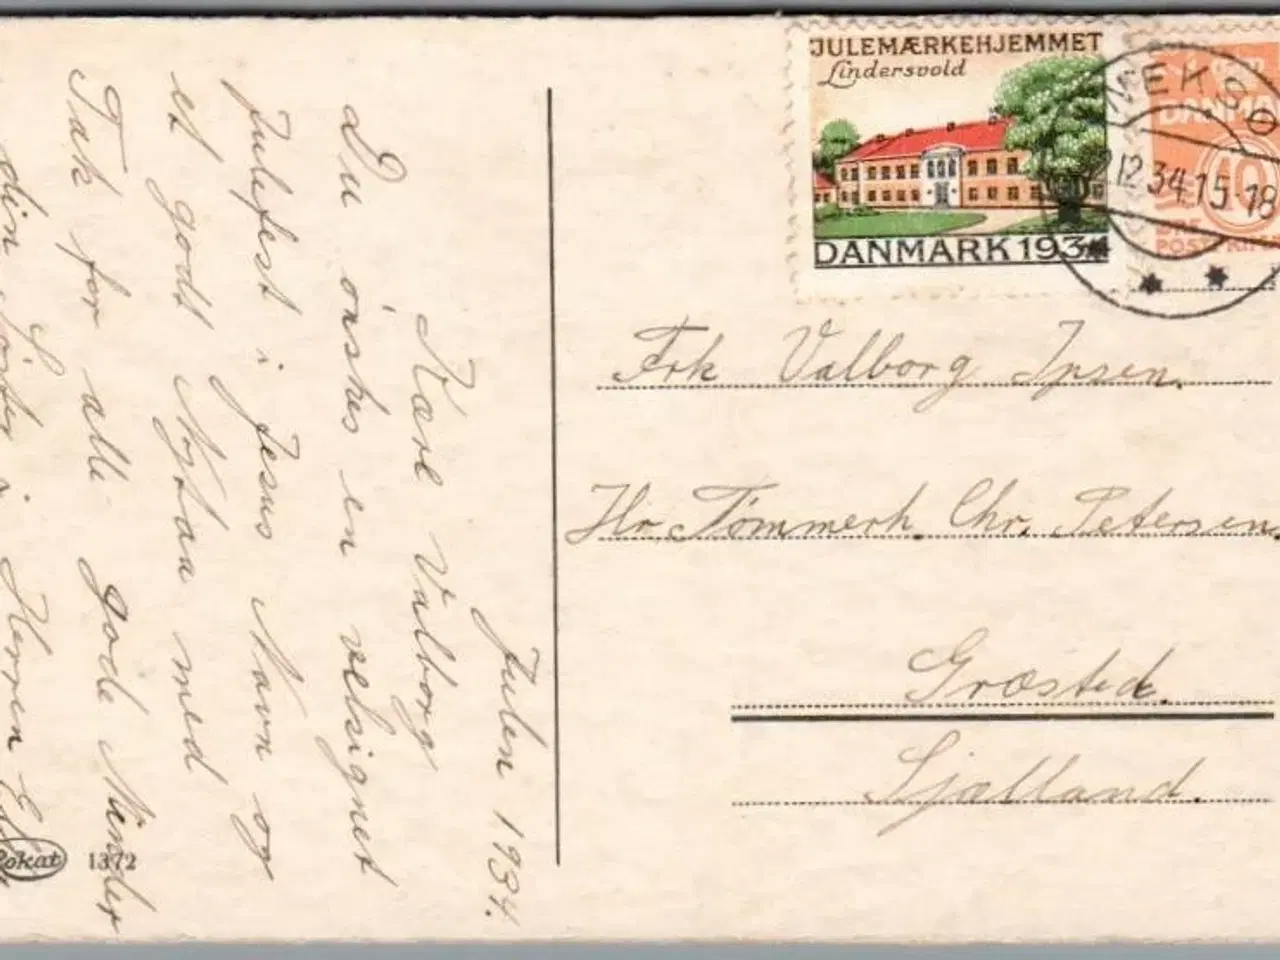 JULEMÆRKEHJEMMET
Lindersvold
DANMARK 1934
DANMA
10
POST
12.34.15-18
Frk Valborg Ipsen.
Hr. Tømmerh. Chr. Petersen.
Græsted.
Sjælland.
Julen 1934.
Kære Valborg
Du ønskes en velsignet
Julefest i Jesus Navn og
et godt Nytaar med
Tak for alle gode Minder
din i Herren
1372